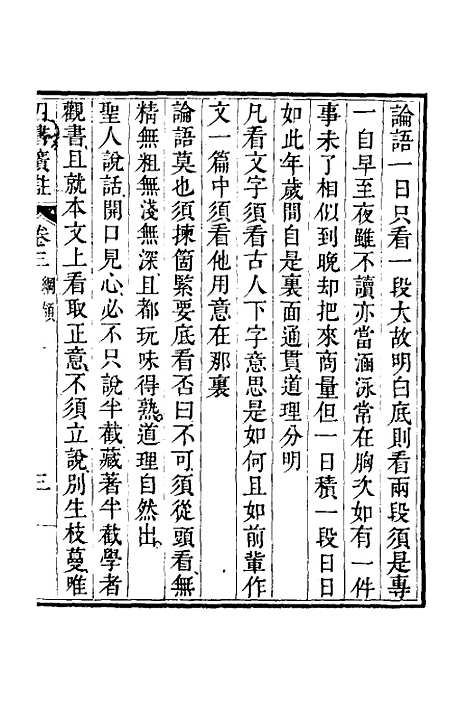 論語一日只看一段大故明白底則看兩段須是專
一自早至夜雖不讀亦當涵泳常在胸次如有一件
事未了相似到晚却把來商量但一日積一段日日
如此年歲間自是裏面通貫道理分明
凡看文字須看古人下字意思是如何且如前輩作
文一篇中須看他用意在那裏
論語莫也須揀箇緊要底看否曰不可須從頭看無
精無粗無淺無深且都玩味得熟道理自然出
聖人說話開口見心必不只說半截藏著半截學者
觀書且就本文上看取正意不須立說別生枝蔓唯
四書廣註 卷三 綱領 三